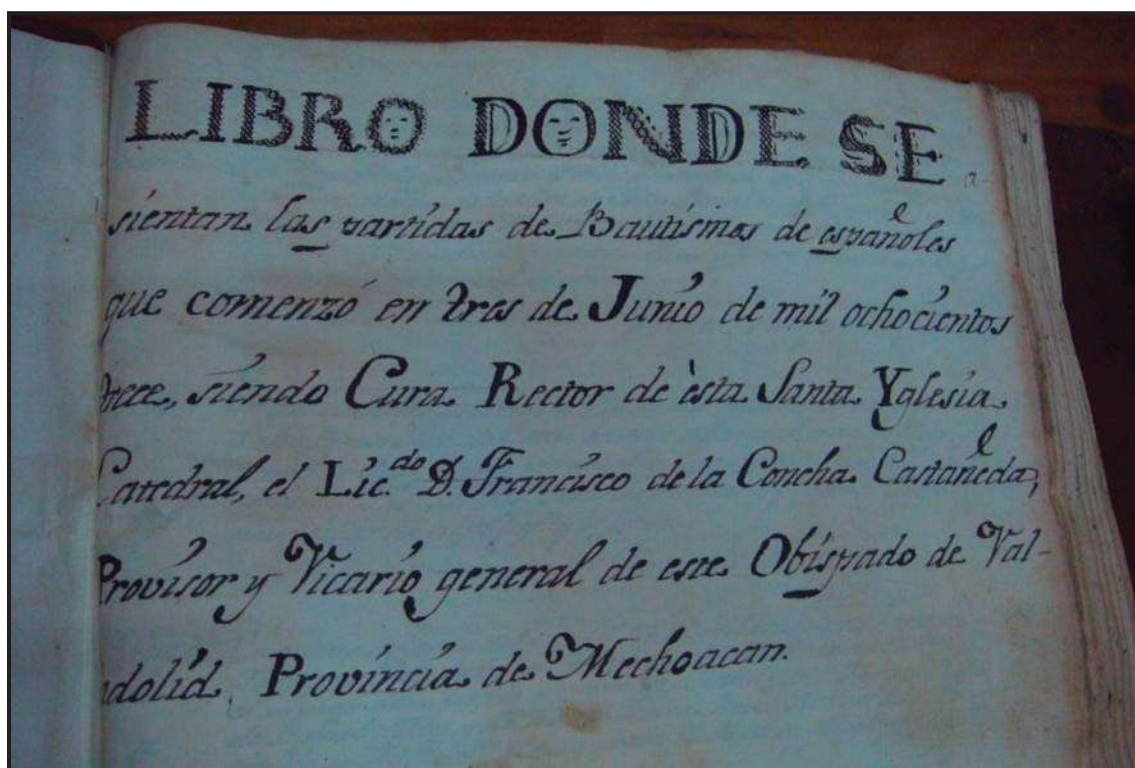 LIBRO DONDE SE
sientan las partidas de Bautismos de españoles
que comenzó en tres de Junio de mil ochocientos
siendo Cura Rector de èsta Santa Yglesia
Catedral, el Lic.do D. Francisco de la Concha Castañeda,
Provisor y Vicario general de este Obispado de Val-
adolid, Provincia de Mechoacan.